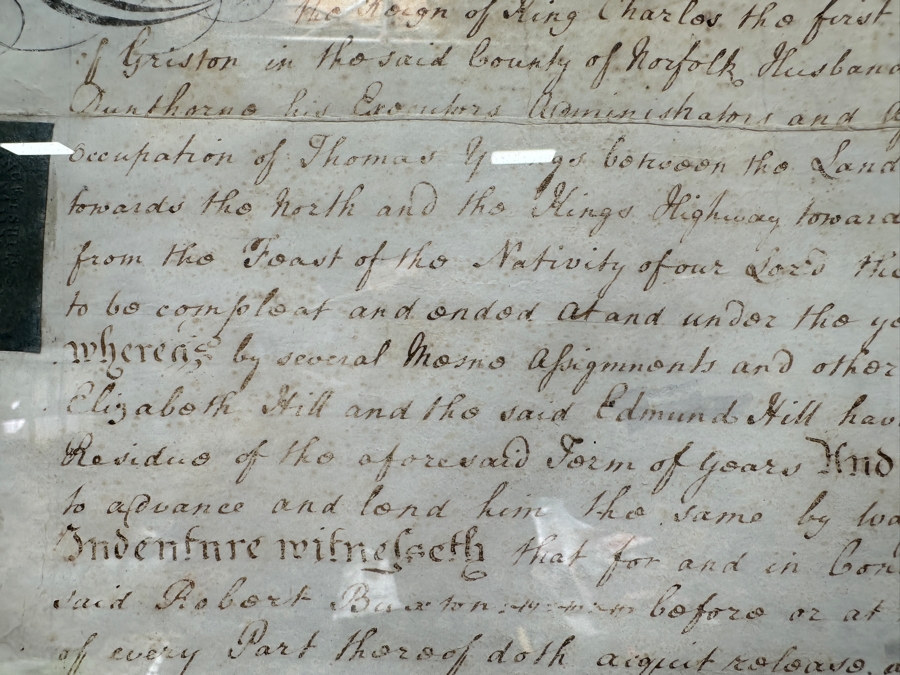 the Reign of King Charles the first
of Griston in the said County of Norfolk Husband
Dunthorne his Executors Administrators and
occupation of Thomas between the Land
towards the North and the Kings Highway toward
from the Feast of the Nativity of our Lord
to be compleat and ended at and under the
whereas by several Mesne Assignments and other
Elizabeth Hill and the said Edmund Hill hav
Residue of the aforesaid Term of Years And
to advance and lend him the same by
Indenture witnesseth that for and in Con
said Robert Buxton before or at
of every Part thereof doth acquit release